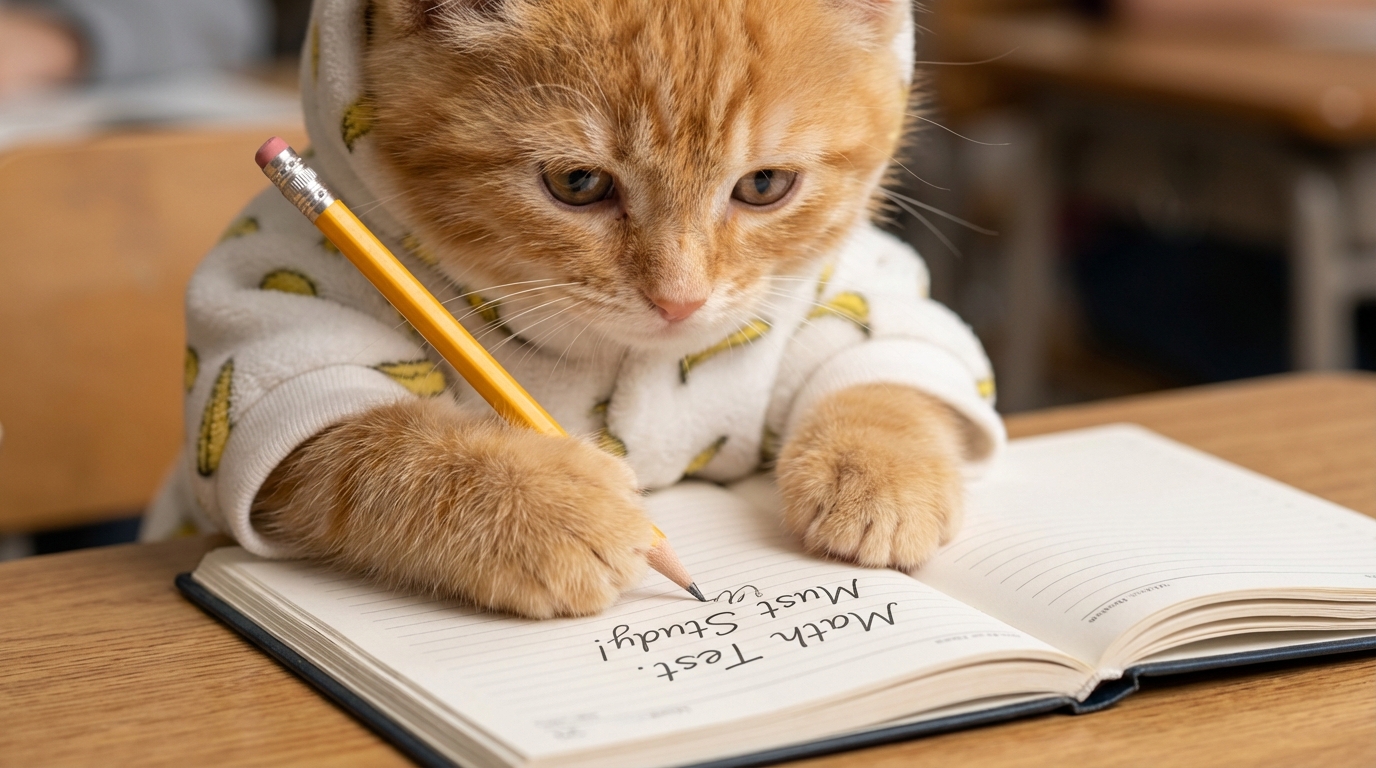 Math Test.
Must Study!